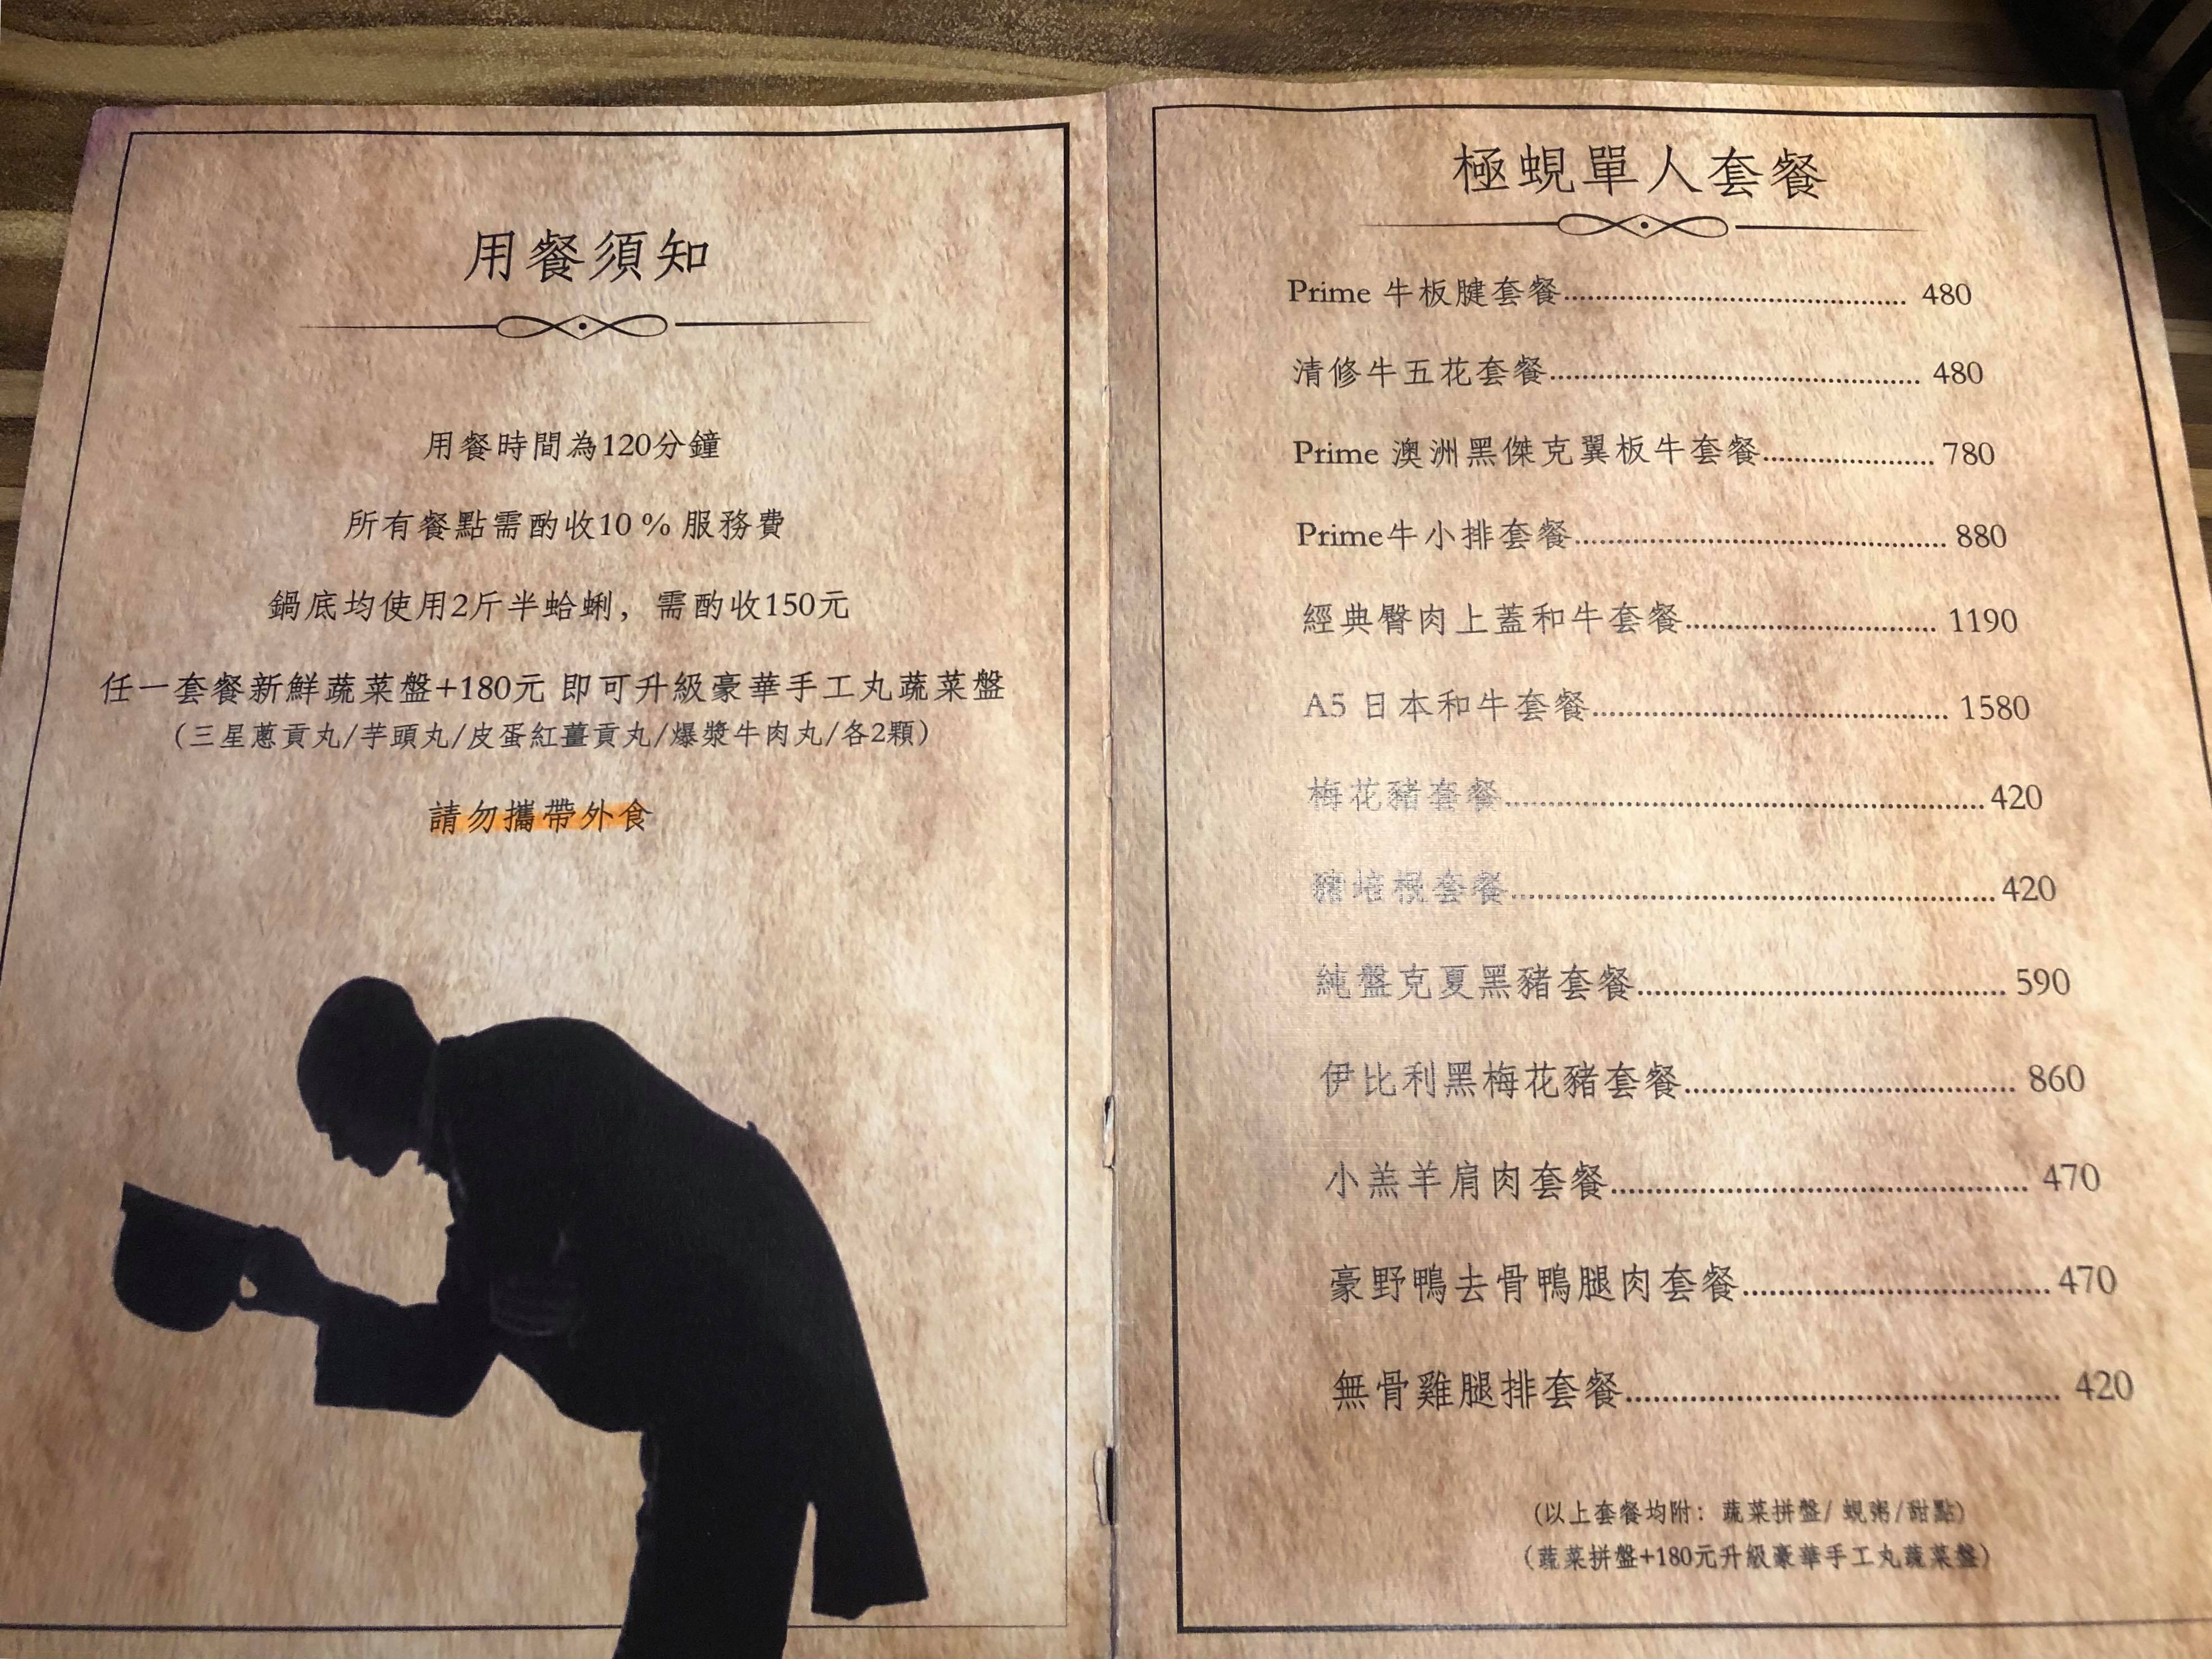 用餐須知
用餐時間為120分鐘
所有餐點需酌收10 % 服務費
鍋底均使用2斤半蛤蜊，需酌收150元
任一套餐新鮮蔬菜盤+180元 即可升級豪華手工丸蔬菜盤
(三星蔥貢丸/芋頭丸/皮蛋紅薑貢丸/爆漿牛肉丸/各2顆)
請勿攜帶外食
極蜆單人套餐
Prime 牛板腱套餐 480
清修牛五花套餐 480
Prime 澳洲黑傑克翼板牛套餐 780
Prime牛小排套餐 880
經典臀肉上蓋和牛套餐 1190
A5 日本和牛套餐 1580
梅花豬套餐 420
豬培根套餐 420
純盤克夏黑豬套餐 590
伊比利黑梅花豬套餐 860
小羔羊肩肉套餐 470
豪野鴨去骨鴨腿肉套餐 470
無骨雞腿排套餐 420
(以上套餐均附：蔬菜拼盤/ 蜆粥/甜點)
(蔬菜拼盤+180元升級豪華手工丸蔬菜盤)